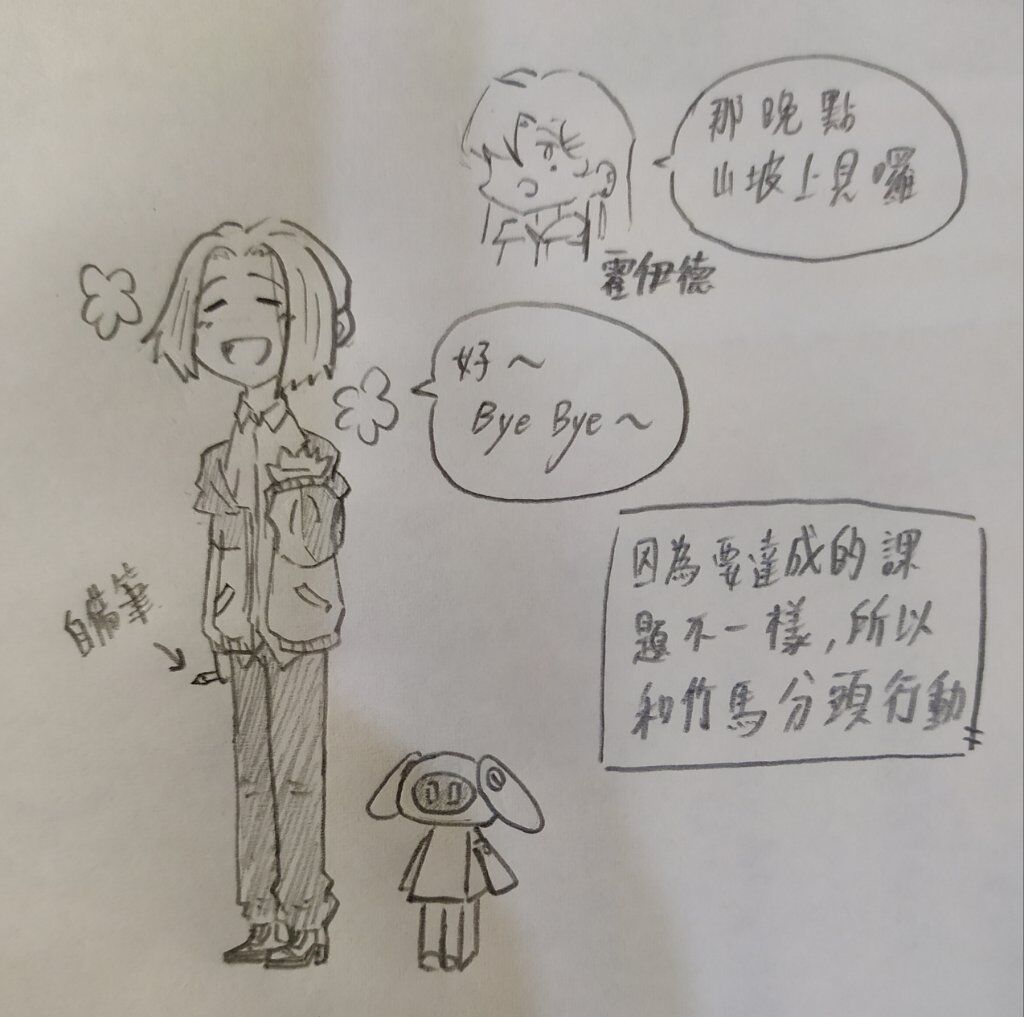 那晚點
山坡上見囉
霍伊德
好～
Bye Bye～
自備筆
因為要達成的課
題不一樣，所以
和竹馬分頭行動